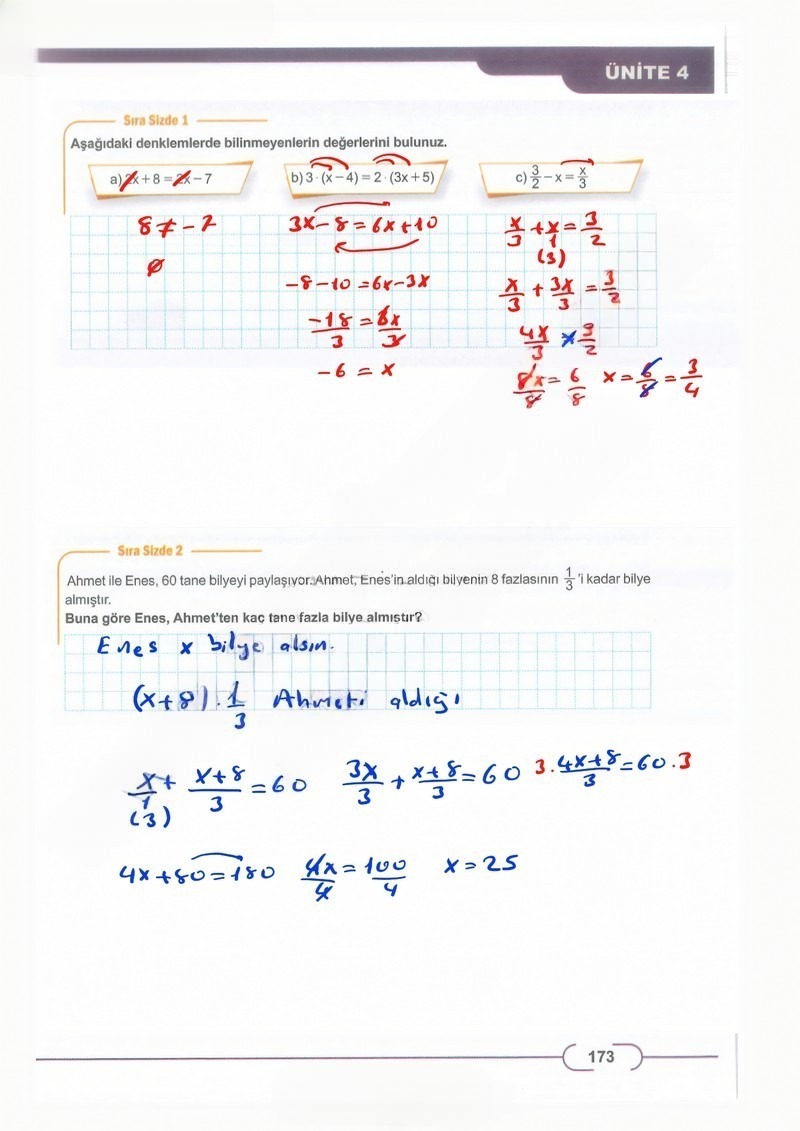 ÜNİTE 4
Sıra Sizde 1
Aşağıdaki denklemlerde bilinmeyenlerin değerlerini bulunuz.
a) 2x + 8 = 2x – 7
b) 3 · (x – 4) = 2 · (3x + 5)
c) 3/2 – x = x/3
8 ≠ - 7
∅
3x - 8 = 6x + 10
-8 - 10 = 6x - 3x
-18/3 = 3x/3
-6 = x
x/3 + x/1 = 3/2
(3)
x/3 + 3x/3 = 3/2
4x/3 × 3/2
8x/8 = 6/8 x = 6/8 = 3/4
Sıra Sizde 2
Ahmet ile Enes, 60 tane bilyeyi paylaşıyor. Ahmet, Enes'in aldığı bilyenin 8 fazlasının 1/3 'i kadar bilye
almıştır.
Buna göre Enes, Ahmet'ten kaç tane fazla bilye almıştır?
Enes x bilye alsın.
(x+8) · 1/3 Ahmeti aldığı
x/1 + x+8/3 = 60 3x/3 + x+8/3 = 60 3 · 4x+8/3 = 60 · 3
(3)
4x + 80 = 180 4x/4 = 100/4 x = 25
173